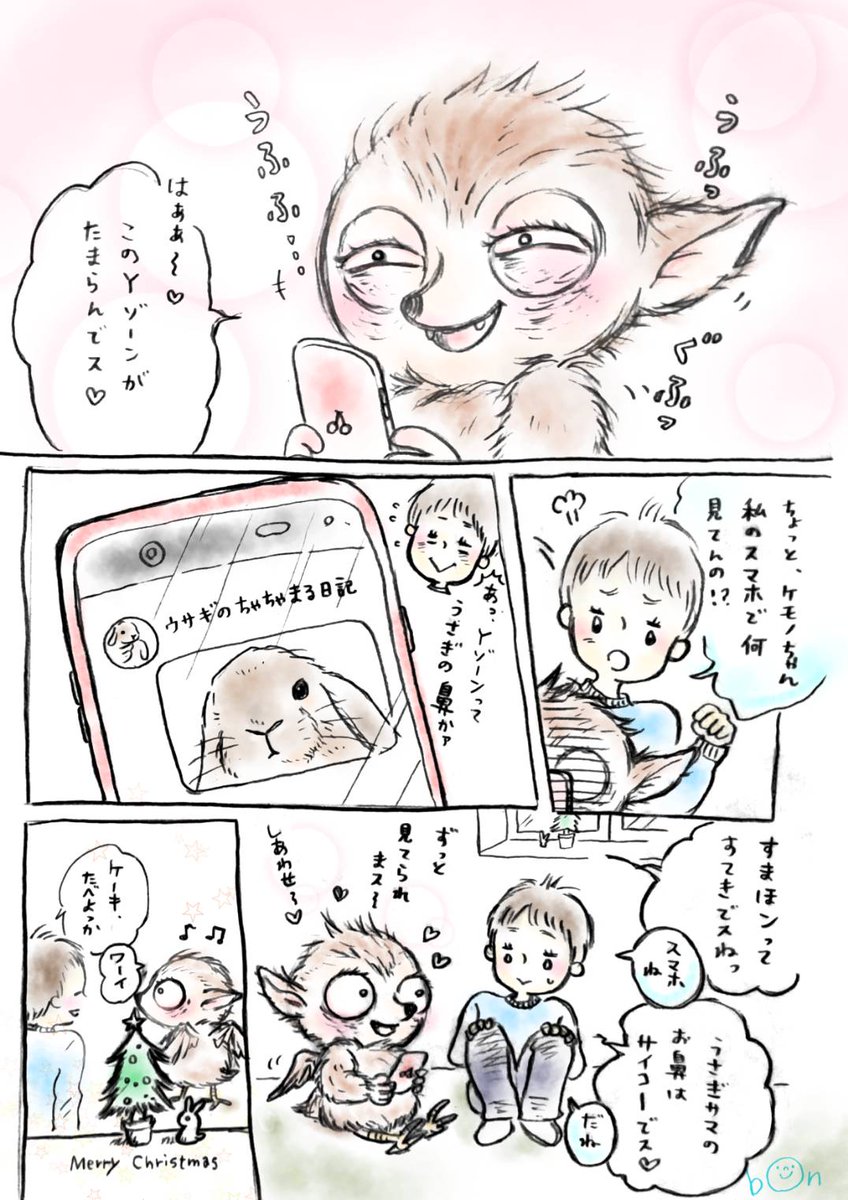 うふっ
ぐふっ
うふふふ…
はぁぁ〜♡
このYゾーンが
たまらんでス♡
ちょっと、ケモノちゃん
私のスマホで何
見てんの!?
あっ、Yゾーンって
うさぎの鼻かァ
ウサギのちゃちゃまる日記
すまほンって
すてきでスねっ
スマホ
ね
うさぎサマの
お鼻は
サイコーでス♡
だね
ずっと
見てられ
まス〜
しあわせ〜♡
ケーキ、
たべよっか
ワーイ
Merry Christmas
bon